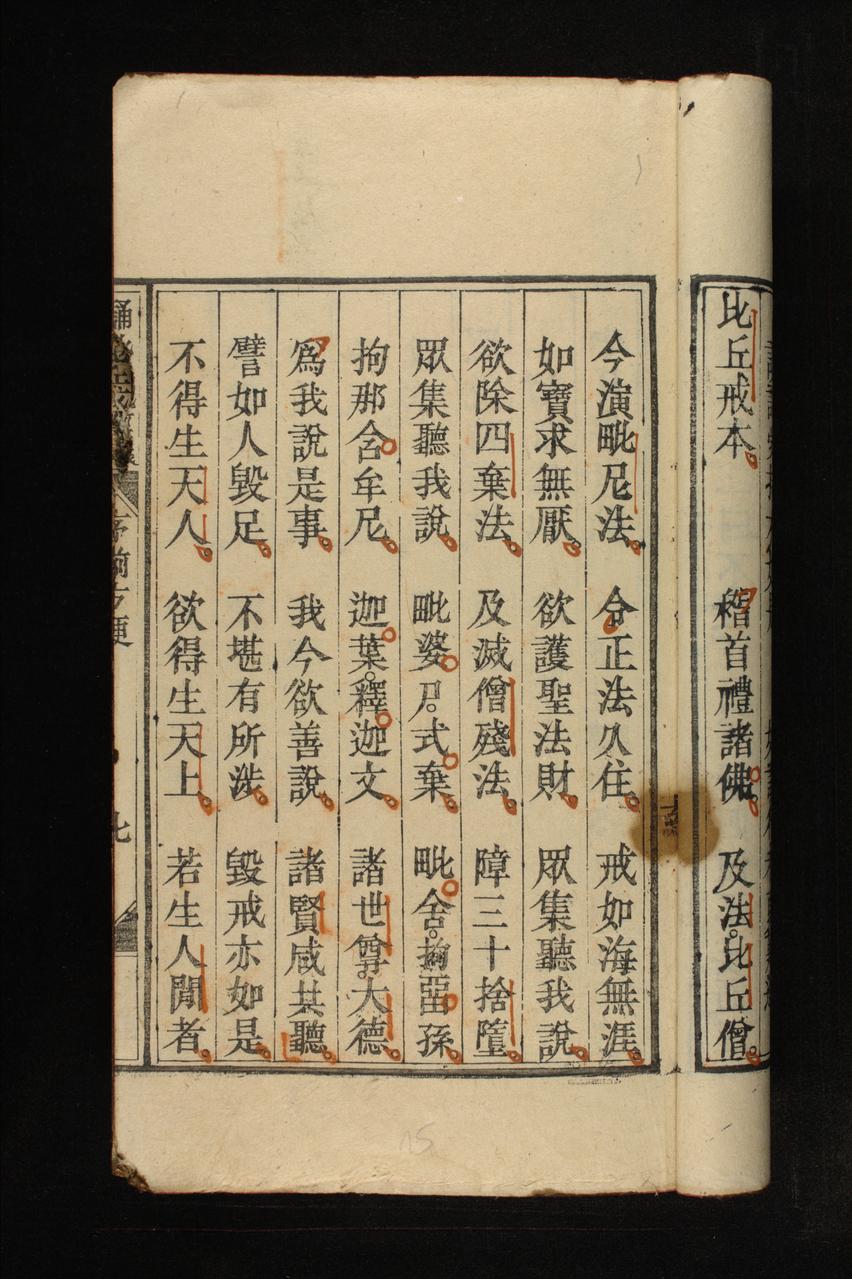 比丘戒本 稽首禮諸佛 及法比丘僧
今演毗尼法 令正法久住 戒如海無涯
如寶求無厭 欲護聖法財 眾集聽我說
欲除四棄法 及滅僧殘法 障三十捨墮
眾集聽我說 毗婆尸式棄 毗舍拘留孫
拘那含牟尼 迦葉釋迦文 諸世尊大德
爲我說是事 我今欲善說 諸賢咸共聽
譬如人毀足 不堪有所涉 毀戒亦如是
不得生天人 欲得生天上 若生人間者
序前方便
七